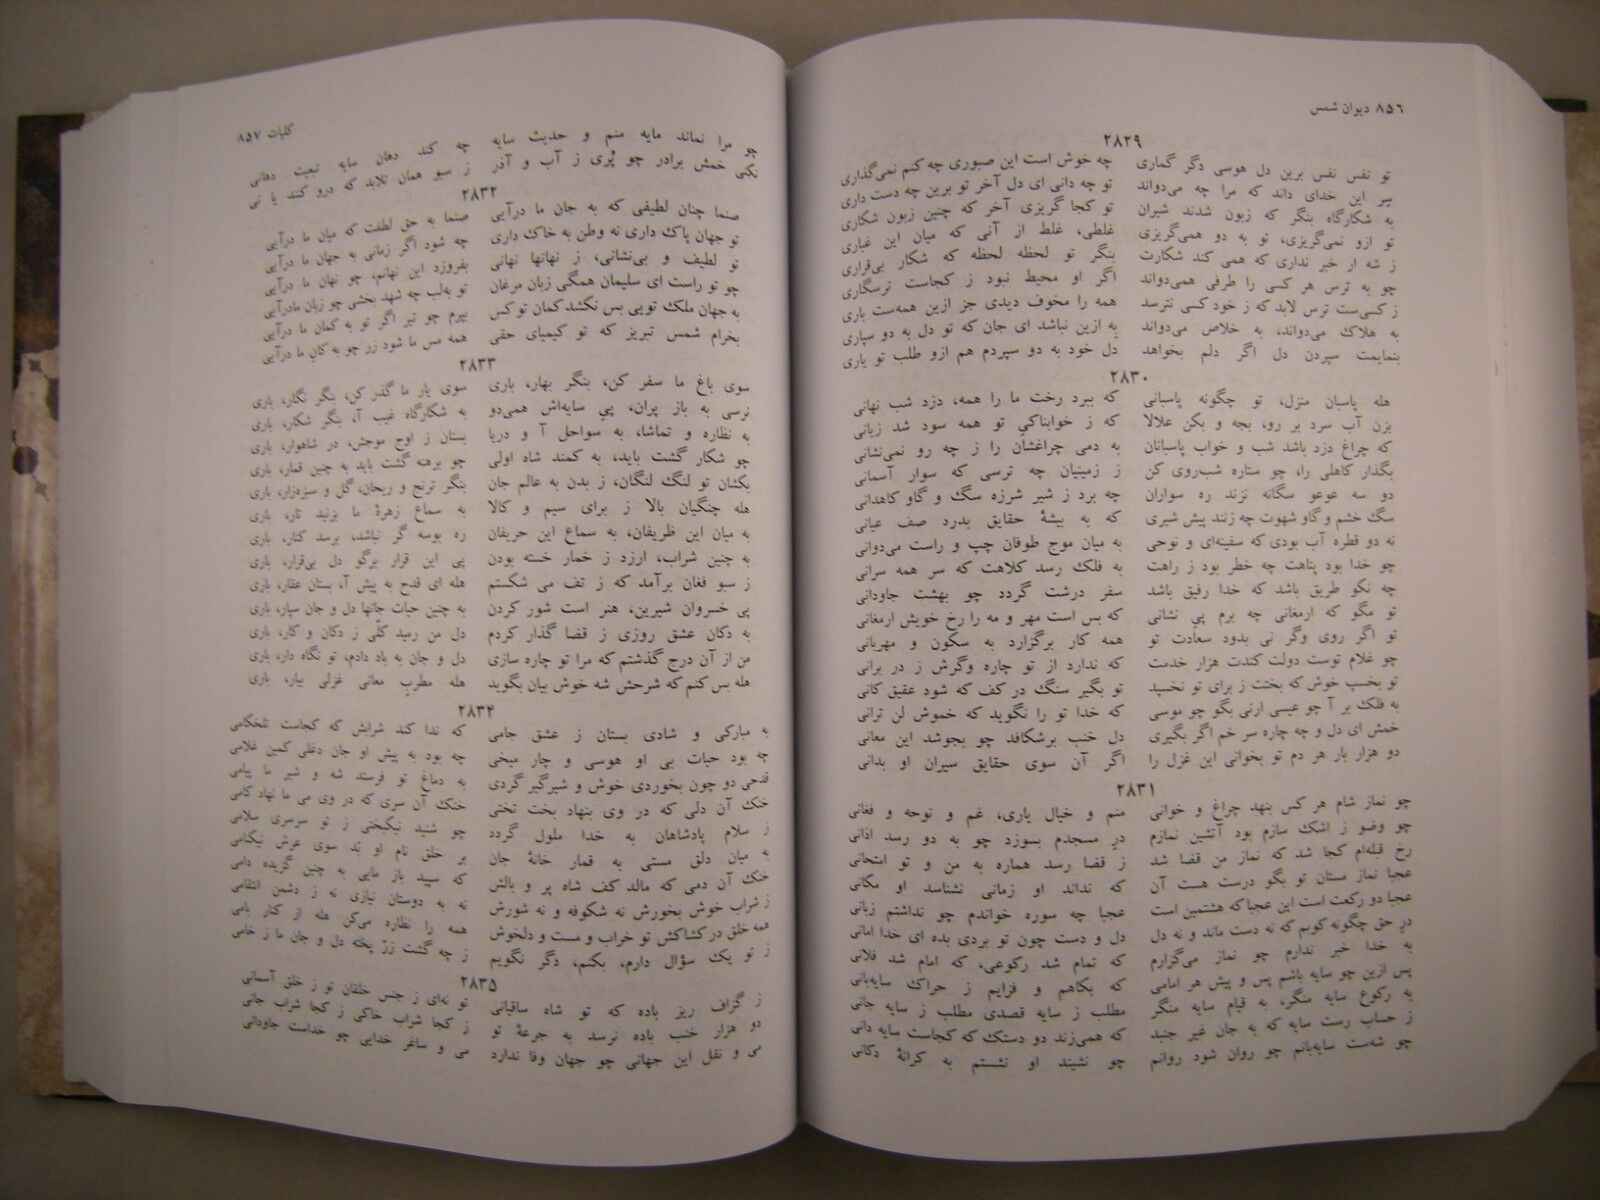 ۸۵۶ دیوان شمس
۲۸۲۹
تو نفس نفس برین دل هوسی دگر گماری چه خوش است این صبوری چه کنم نمی‌گذاری
سر این خدای داند که مرا چه می‌دواند تو چه دانی ای دل آخر تو برین چه دست داری
به شکارگاه بنگر که زبون شدند شیران تو کجا گریزی آخر که چنین زبون شکاری
تو ازو نمی‌گریزی، تو به دو همی‌گریزی غلطی، غلط از آنی که میان این غباری
ز شه ار خبر نداری که همی کند شکارت بنگر تو لحظه لحظه که شکار بی‌قراری
چو به ترس هر کسی را طرفی همی‌دواند اگر او محیط نبود ز کجاست ترسگاری
ز کسی‌ست ترس لابد که ز خود کسی نترسد همه را مخوف دیدی جز ازین همه‌ست باری
به هلاک می‌دواند، به خلاص می‌دواند به ازین نباشد ای جان که تو دل به دو سپاری
بنمایمت سپردن دل اگر دلم بخواهد دل خود به دو سپردم هم ازو طلب تو یاری
۲۸۳۰
هله پاسبان منزل، تو چگونه پاسبانی که ببرد رخت ما را همه، دزد شب نهانی
بزن آب سرد بر رو، بجه و بکن علالا که ز خوابناکی تو همه سود شد زیانی
که چراغ دزد باشد شب و خواب پاسبانان به دمی چراغشان را ز چه رو نمی‌نشانی
بگذار کاهلی را، چو ستاره شب‌روی کن ز زمینیان چه ترسی که سوار آسمانی
دو سه عوعو سگانه نزند ره سواران چه برد ز شیر شرزه سگ و گاو کاهدانی
سگ خشم و گاو شهوت چه زنند پیش شیری که به بیشهٔ حقایق بدرد صف عیانی
نه دو قطره آب بودی که سفینه‌ای و نوحی به میان موج طوفان چپ و راست می‌دوانی
چو خدا بود پناهت چه خطر بود ز راهت به فلک رسد کلاهت که سر همه سرانی
چه نکو طریق باشد که خدا رفیق باشد سفر درشت گردد چو بهشت جاودانی
تو مگو که ارمغانی چه برم پی نشانی که بس است مهر و مه را رخ خویش ارمغانی
تو اگر روی وگر نی بدود سعادت تو همه کار برگزارد به سکون و مهربانی
چو غلام توست دولت کندت هزار خدمت که ندارد از تو چاره وگرش ز در برانی
تو بخسپ خوش که بختت ز برای تو نخسپد تو بگیر سنگ در کف که شود عقیق کانی
به فلک بر آ چو عیسی ارنی بگو چو موسی که خدا تو را نگوید که خموش لن ترانی
خمش ای دل و چه چاره سر خم اگر بگیری دل خنب برشکافد چو بجوشد این معانی
دو هزار بار هر دم تو بخوانی این غزل را اگر آن سوی حقایق سیران او بدانی
۲۸۳۱
چو نماز شام هر کس بنهد چراغ و خوانی منم و خیال یاری، غم و نوحه و فغانی
چو وضو ز اشک سازم بود آتشین نمازم در مسجدم بسوزد چو به دو رسد اذانی
رخ قبله‌ام کجا شد که نماز من قضا شد ز قضا رسد هماره به من و تو امتحانی
عجبا نماز مستان تو بگو درست هست آن که نداند او زمانی نشناسد او مکانی
عجبا دو رکعت است این عجبا که هشتمین است عجبا چه سوره خواندم چو نداشتم زبانی
در حق چگونه کوبم که نه دست ماند و نه دل دل و دست چون تو بردی بده ای خدا امانی
به خدا خبر ندارم چو نماز می‌گزارم که تمام شد رکوعی، که امام شد فلانی
پس ازین چو سایه باشم پس و پیش هر امامی که بکاهم و فزایم ز حراک سایه‌بانی
به رکوع سایه منگر، به قیام سایه منگر مطلب ز سایه قصدی مطلب ز سایه جانی
ز حساب رست سایه که به جان غیر جنبد که همی‌زند دو دستک که کجاست سایه دانی
چو شه‌ست سایه‌بانم چو روان شود روانم چو نشیند او نشستم به کرانهٔ دکانی
کلیات ۸۵۷
چو مرا نماند مایه منم و حدیث سایه چه کند دهان سایه تبعیت دهانی
نکنی خمش برادر چو پُری ز آب و آذر ز سبو همان تلابد که درو کنند یا نی
۲۸۳۲
صنما چنان لطیفی که به جان ما درآیی صنما به حق لطفت که میان ما درآیی
تو جهان پاک داری نه وطن به خاک داری چه شود اگر زمانی به جهان ما درآیی
تو لطیف و بی‌نشانی، ز نهانها نهانی بفروزد این نهانم، چو نهان ما درآیی
چو تو راست ای سلیمان همگی زبان مرغان تو به‌لب چه شهد بخشی چو زبان مادرآیی
به جهان ملک تویی بس نکشد کمان توکس بپرم چو تیر اگر تو به کمان ما درآیی
بخرام شمس تبریز که تو کیمیای حقی همه مس ما شود زر چو به کان ما درآیی
۲۸۳۳
سوی باغ ما سفر کن، بنگر بهار، باری سوی یار ما گذر کن، بنگر نگار، باری
نرسی به باز پران، پی سایه‌اش همی‌دو به شکارگاه غیب آ، بنگر شکار، باری
به نظاره و تماشا، به سواحل آ و دریا بستان ز اوج موجش، در شاهوار، باری
چو شکار گشت باید، به کمند شاه اولی چو برهنه گشت باید به چنین قمار، باری
بکشان تو لنگ لنگان، ز بدن به عالم جان بنگر ترنج و ریحان، گل و سبزه‌زار، باری
هله چنگیان بالا ز برای سیم و کالا به سماع زهرهٔ ما بزنید تار، باری
به میان این ظریفان، به سماع این حریفان ره بوسه گر نباشد، برسد کنار، باری
به چنین شراب، ارزد ز خمار خسته بودن پی این قرار برگو دل بی‌قرار، باری
ز سبو فغان برآمد که ز تف می شکستم هله ای قدح به پیش آ، بستان عقار، باری
پی خسروان شیرین، هنر است شور کردن به چنین حیات جانها دل و جان سپار، باری
به دکان عشق روزی ز قضا گذار کردم دل من رمید کلّی ز دکان و کار، باری
من از آن درج گذشتم که مرا تو چاره سازی دل و جان به باد دادم، تو نگاه دار، باری
هله بس کنم که شرحش شه خوش بیان بگوید هله مطرب معانی غزلی بیار، باری
۲۸۳۴
به مبارکی و شادی بستان ز عشق جامی که ندا کند شرابش که کجاست تلخکامی
چه بود حیات بی او هوسی و چار میخی چه بود به پیش او جان دغلی کمین غلامی
قدحی دو چون بخوردی خوش و شیرگیر گردی به دماغ تو فرستد شه و شیر ما پیامی
خنک آن دلی که در وی بنهاد بخت تختی خنک آن سری که در وی می ما نهاد کامی
ز سلام پادشاهان به خدا ملول گردد چو شنید نیکبختی ز تو سرسری سلامی
به میان دلق مستی به قمار خانهٔ جان بر خلق نام او بَد سوی عرش نیکنامی
خنک آن دمی که مالد کف شاه پر و بالش که سپید باز مایی به چنین گزیده دامی
ز شراب خوش بخورش نه شکوفه و نه شورش نه به دوستان نیازی نه ز دشمن انتقامی
همه خلق در کشاکش تو خراب و مست و دلخوش همه را نظاره می‌کن هله از کنار بامی
ز تو یک سؤال دارم، بکنم، دگر نگویم ز چه گشت زرّ پخته دل و جان ما ز خامی
۲۸۳۵
ز گزاف ریز باده که تو شاه ساقیانی تو نه‌ای ز جنس خلقان تو ز خلق آسمانی
دو هزار خنب باده نرسد به جرعهٔ تو ز کجا شراب خاکی ز کجا شراب جانی
می و نقل این جهانی چو جهان وفا ندارد می و ساغر خدایی چو خداست جاودانی